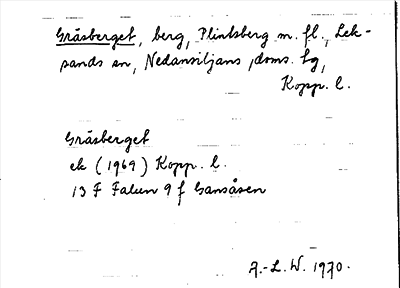 Gråsberget, berg, Plintsberg m. fl., Lek-
sands sn, Nedansiljans doms. tg,
Kopp. l.
Gråsberget
ek (1969) Kopp. l.
13 F Falun 9 f Gansåsen
A.-L. W. 1970.